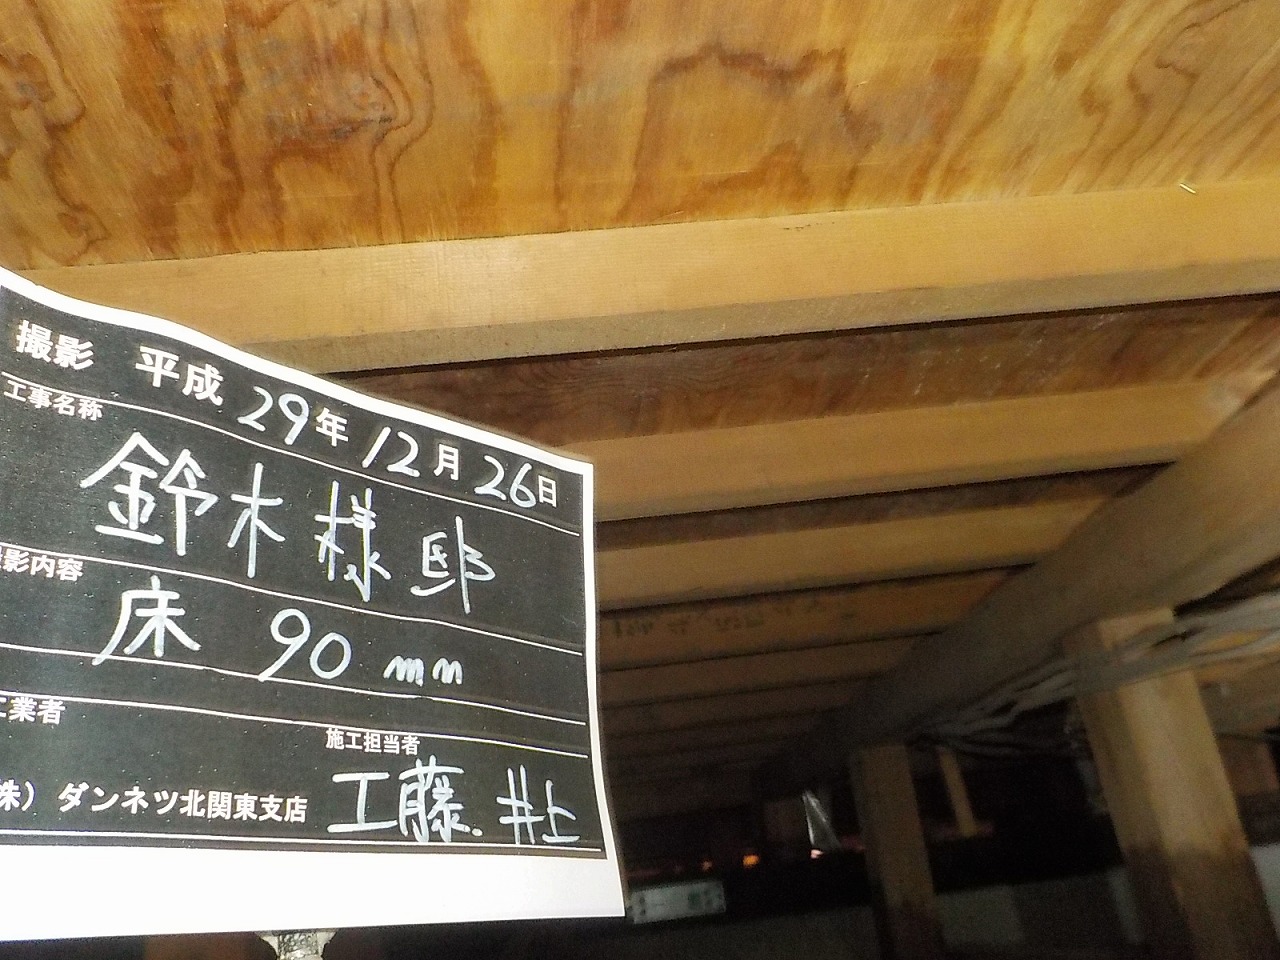 撮影 平成 29年 12月 26日
工事名称
鈴木様邸
影内容
床 90mm
業者
株） ダンネツ北関東支店
施工担当者
工藤. 井上